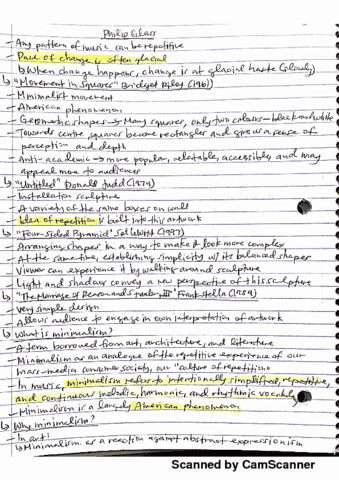 Philip Glass
- Any pattern of music can be repetitive
- Pace of change is often glacial
↳ When change happens, change is at glacial haste (slowly)
↳ "Movement in Squares" Bridget Riley (1961)
- Minimalist movement
- American phenomenon
- Geometric shapes → Many squares, only two colours - black and white
- Towards centre, squares become rectangles and give us a sense of
perception and depth
- Anti-academic → more popular, relatable, accessible, and may
appeal more to audiences
↳ "Untitled" Donald Judd (1974)
- Installation sculpture
- A variety of the same boxes on wall
- Idea of repetition is built into this artwork
↳ "Four-Sided Pyramid" Sol LeWitt (1997)
- Arranging shapes in a way to make it look more complex
- At the same time, establishing simplicity w/ its balanced shape
- Viewer can experience it by walking around sculpture
- Light and shadows convey a new perspective of this sculpture
↳ "The Marriage of Reason and Squalor, II" Frank Stella (1959)
- Very simple design
- Allows audience to engage in own interpretation of artwork
↳ What is minimalism?
- A term borrowed from art, architecture, and literature
- Minimalism as an analogue of the repetitive experience of our
mass-media consumer society, our "culture of repetitions"
- In music, minimalism refers to intentionally simplified, repetitive,
and continuous melodic, harmonic, and rhythmic vocabulary
- Minimalism is a largely American phenomenon
↳ Why minimalism?
- In art:
↳ Minimalism as a reaction against abstract expressionism
Scanned by CamScanner